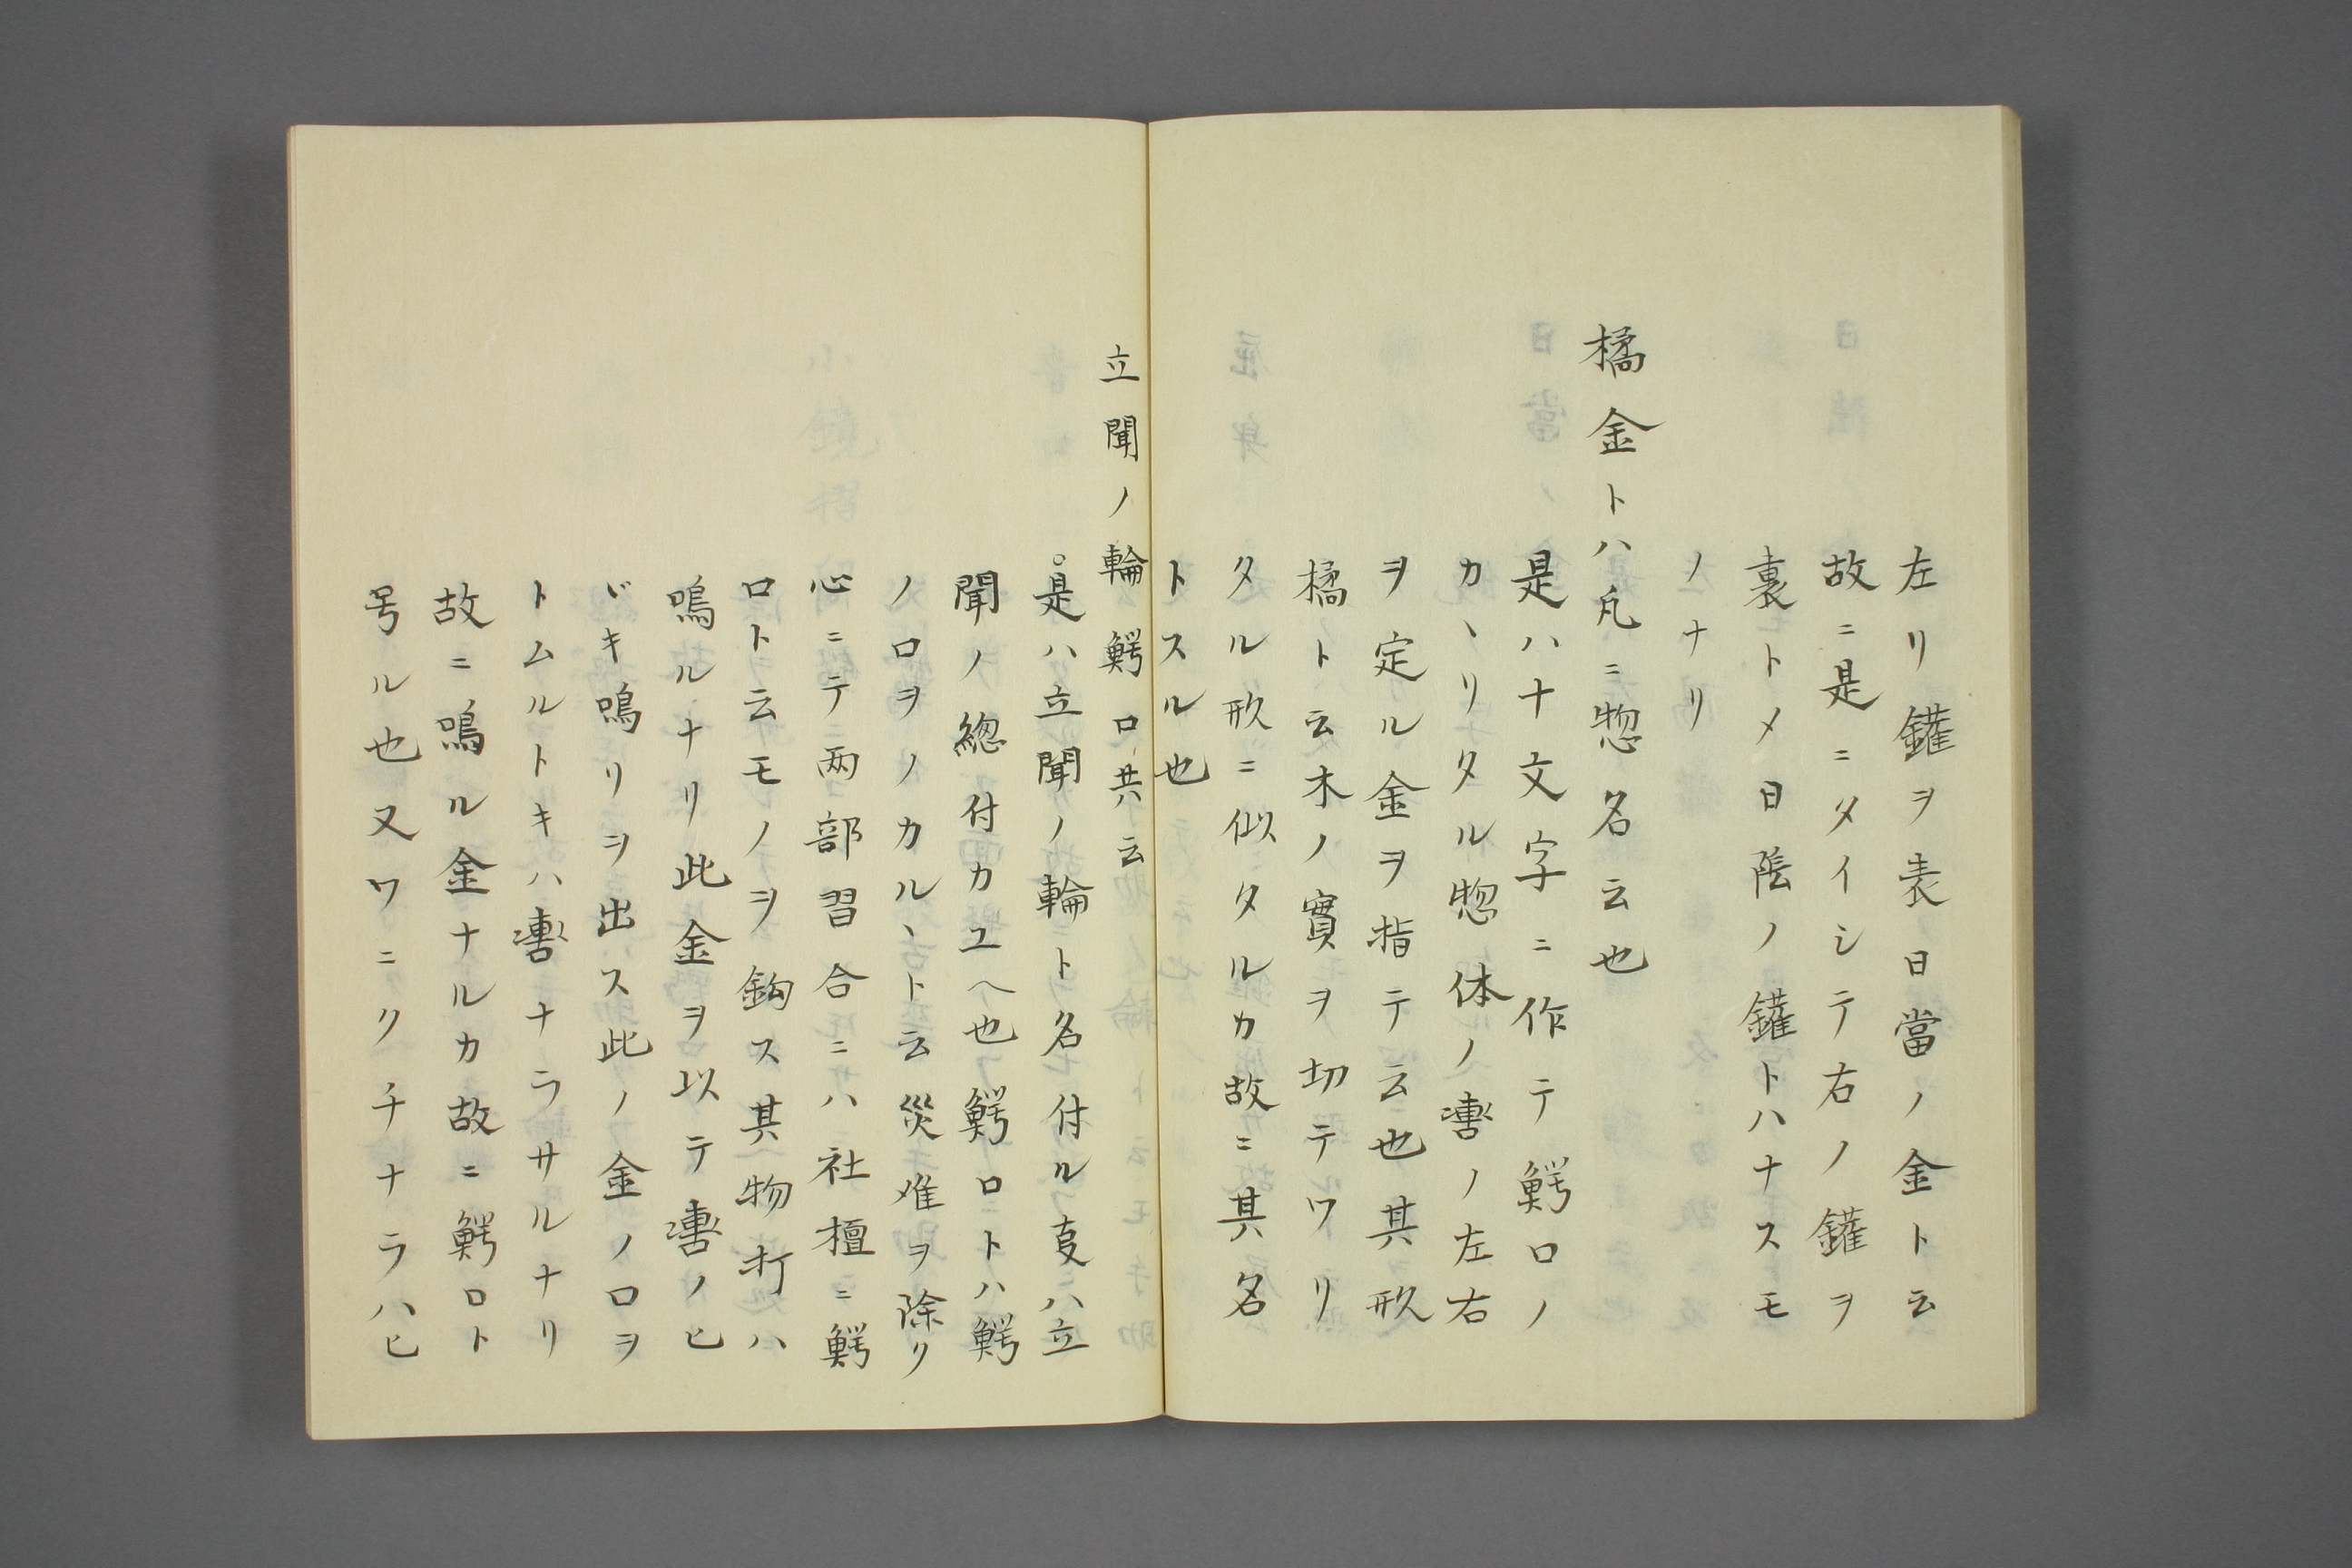 左リ鑵ヲ表日當ノ金ト云
故ニ是ニタイシテ右ノ鑵ヲ
裏トメ日陰ノ鑵トハナスモ
ノナリ
橘金トハ凡ニ惣名云也
是ハ十文字ニ作テ鰐口ノ
カヽリタル惣体ノ轡ノ左右
ヲ定ル金ヲ指テ云也其形
橘ト云木ノ實ヲ切テワリ
タル形ニ似タルカ故ニ其名
トスル也
立聞ノ輪鰐口共云
。是ハ立聞ノ輪ト名付ル叓ハ立
聞ノ總付カユヘ也鰐口トハ鰐
ノ口ヲノカルヽト云災难ヲ除リ
心ニテ两部習合ニハ社檀ニ鰐
口ト云モノヲ鈎ス其物打ハ
鳴ルナリ此金ヲ以テ轡ノヒ
バキ鳴リヲ出ス此ノ金ノ口ヲ
トムルトキハ轡ナラサルナリ
故ニ鳴ル金ナルカ故ニ鰐口ト
号ル也又ワニクチナラハヒ